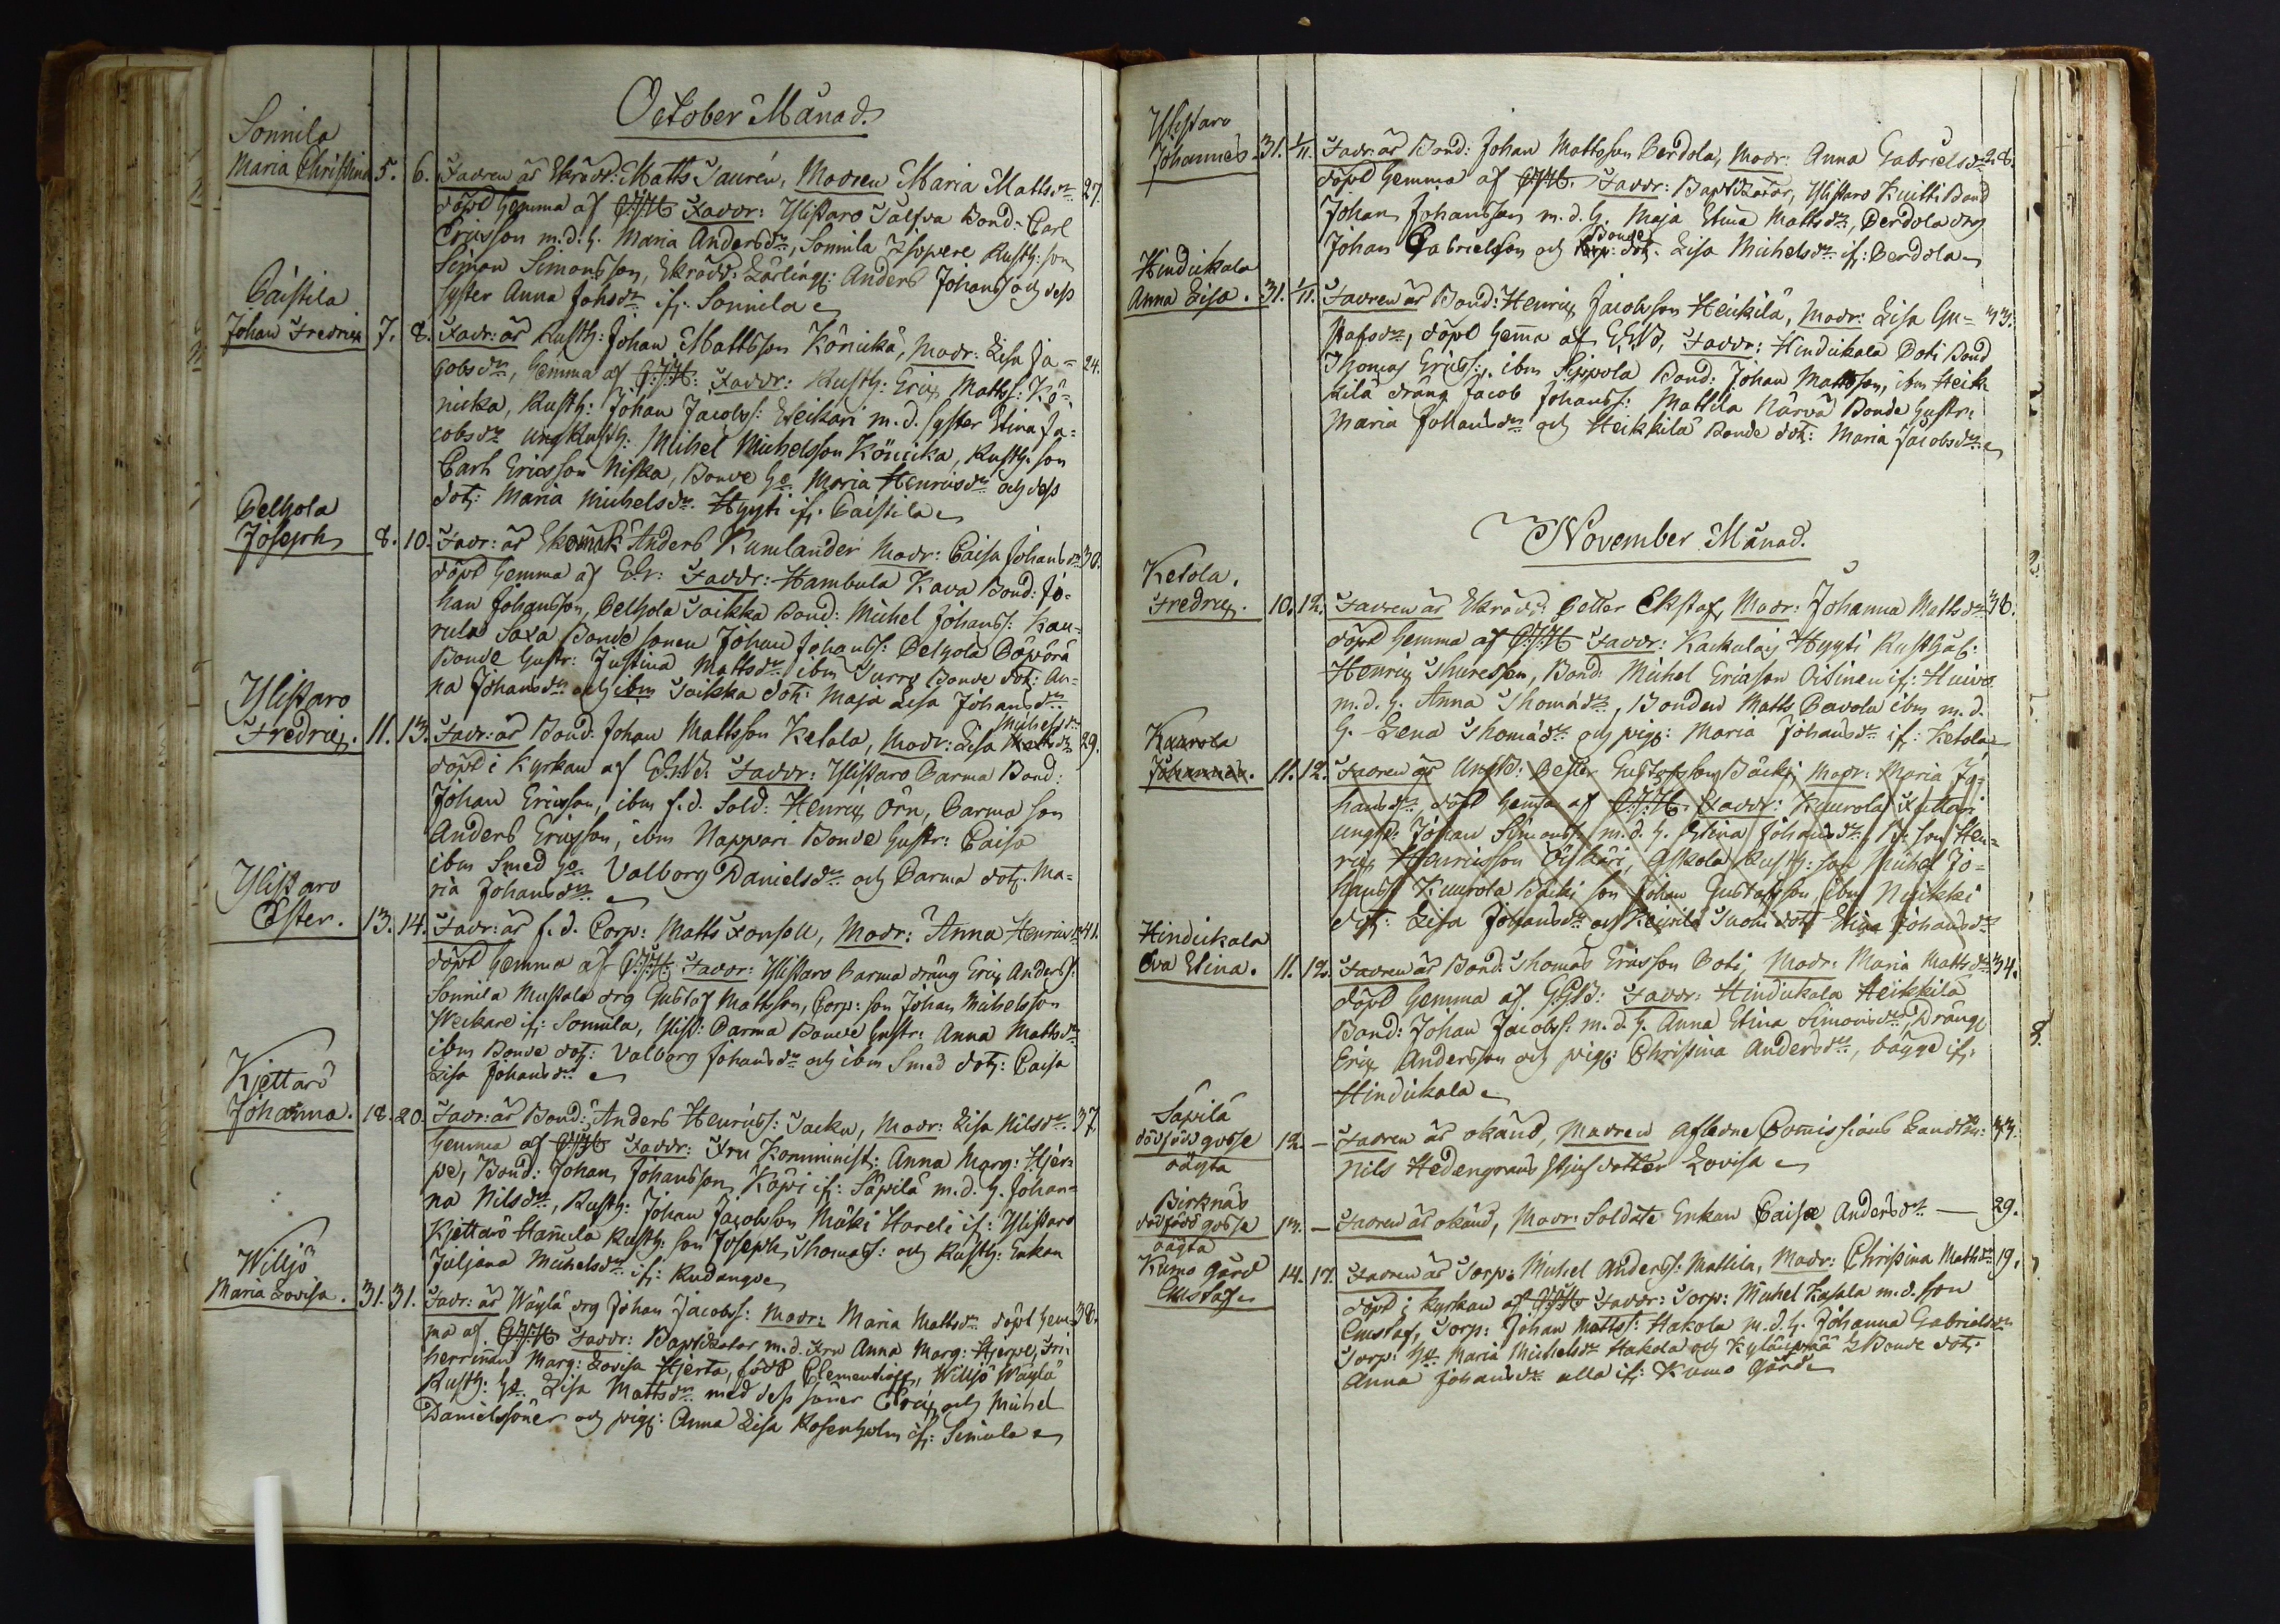 October Månad.
Sonnila
Maria Christina 5. 6. Fadren är Ekrådd: Matts Saurén, Modren Maria Mattsdr 27.
döpt hemma af Faddr: Ylistaro Talfva Bond: Carl
Ericsson m.d.h. Maria Andersdr, Sonnila Isopere Rusth: son
Simon Simonsson, Ekrådd: Lärlingg: Anders Johanss och dess
syster Anna Johsdr if: Sonnila
Paistila
Johan Fredric 7. 8. Fadr: är Rusth: Johan Mattsson Könickä, Modr: Lisa Ja- 24.
cobsdr, hemma af Faddr: Rusth: Eric Mattss: Kö-
nicka, Rusth: Johan Jacobss: Eteikari m.d. syster Stina Ja-
cobsdr ungRusth: Michel Michelsson Könicka, Rusth: son
Carl Ericsson Niska, Bonde Ho Maria Henricsdr och dess
dotr: Maria Michelsdr Hyyti if: Paistila
Pelhola
Joseph 8. 10. Fadr: är Anders Kumlander Modr: Caisa Johansdr 30.
döpt hemma af Faddr: Hambula Kava Bond: Jo-
han Johansson, Pelhola Saikka Bond: Michel Johanss: Kau-
rula Saxa Bonde sonen Johan Johanss: Pelhola Päpörä
Bonde hustr: Justina Mattsdr ibm Surry Bonde dotr: An-
na Johansdr och ibm Saikka dotr: Maja Lisa Johansdr
Ylistaro Michelsdr
Fredric. 11. 13. Fadr: är Bond: Johan Mattsson Ketala, Modr: Lisa 29.
döpt i Kyrkan af Faddr: Ylistaro Parma Bond:
Johan Ericsson, ibm f.d. Sold: Henric Örn, Parma son
Anders Ericsson, ibm Nappari Bonde hustr: Caisa
ibm Smed Ho Valborg Danielsdr och Parma dotr: Ma-
ria Johansdr
Ylistaro
Ester. 13. 14. Fadr: är f.d. Corp: Matts Forssell, Modr: Anna Henricsdr 41.
döpt hemma af Faddr: Ylistaro Parma dräng Eric Anderss:
Sonnila Mustala drg Gustaf Mattsson, Corp: son Johan Michelsson
Weckare if: Sonnila, Ylist: Parma Bonde hustr: Anna Mattsdr
ibm Bonde dotr: Valborg Johansdr och ibm Smed dotr: Caisa
Lisa Johansdr
Kjettarö
Johanna. 18. 20. Fadr: är Bond: Anders Henricss: Jacku, Modr: Lisa Nilsdr 37.
hemma af Faddr: Fru Komminist: Anna Marg: Hjer-
pe, Bond: Johan Johansson Köpi if: Säpilä m.d.h. Johan-
na Nilsdr, Rusth: Johan Jacobson Mäki Hareli if: Ylistaro
Kjettarö Hannula Rusth: son Joseph Thomass: och Rusth: Enkan
Juljana Michelsdr if: Rudanpe
Willjö
Maria Lovisa. 31. 31. Fadr: är Wäylä drg Johan Jacobss: Modr: Maria Mattsdr döpt hem- 38.
ma af Faddr: Baptizator m.d. Fru Anna Marg: Hjerpe, Fri-
herrinnan Marg: Lovisa Hjerta, född Clementeoff, Willjö Wäylä
Rusth: Ho Lisa Mattsdr med dess söner Eric och Michel
Danielssöner och pigg: Anna Lisa Rosenholm if: Simula
Ylistaro
Johannes. 31. 1/11. Fadr: är Bond: Johan Mattsson Perdola, Modr: Anna Gabrielsdr 28.
döpt hemma af Faddr: Baptizator, Ylistaro Kuitti Bond
Johan Johansson m.d.h. Maja Stina Mattsdr, Perdola drg
Johan Gabrielson och Bonde dotr. Lisa Michelsdr if: Perdola
Hindickala
Anna Lisa. 31. 1/11. Fadren är Bond: Henric Jacobson Heickilä, Modr: Lisa Gu- 33.
stafsdr, döpt hemma af Faddr: Hindickala Poti Bond
Thomas Ericss:, ibm Sippola Bond: Johan Mattsson, ibm Heik-
kilä dräng Jacob Johanss: Mattila Närvä Bonde hustr:
Maria Johansdr och Heikkilä Bonde dotr: Maria Jacobsdr
November Månad.
Ketola.
Fredric. 10. 12. Fadren är Ekrådd: Petter Ekstaf, Modr: Johanna Mattsdr 36.
döpt hemma af Faddr: Kackulais Hyyti Rusthåll:
Henric Thuresson, Bond: Michel Ericsson Oisinen if: Huivo
m.d.h. Anna Thomädr, Bonden Matts Pavola ibm m.d.
h. Lena Thomädr och pigg: Maria Johansdr if: Ketola
Kaurola
Johannes. 11. 12. Fadren är UngB: Petter Gustafsson Bäcki, Modr: Maria Jo-
hansdr, döpt hemma af Faddr: Kaurola Juttari
ungB: Johan Simonss: m.d.h. Stina Johansdr, B: son Hen-
ric Henricsson Öiskäri, Askola Rusth: son Michel Jo-
hanss: Kaurola Bäcki son Johan Gustafsson, ibm Neickki
dotr: Lisa Johansdr och Keipilä Suoni dotr: Stina Johansdr
Hindickala
Eva Stina. 11. 12. Fadren är Bond: Thomas Ericsson Poti, Modr: Maria Mattsdr 34.
döpt hemma af Faddr: Hindickala Heikkilä
Bond: Johan Jacobss: m.d.h. Anna Stina Simonsdr, Dräng
Eric Andersson och pigg: Christina Andersdr, bägge if:
Hindickala
Säpilä
dödfödd gosse 12. — Fadren är okänd, Modren Afledne Commissions Landtm: 33.
oägta Nils Hedengrans stjufdotter Lovisa
Birknäs
dödfödd gosse 13. — Fadren är okänd, Modr: Soldate Enkan Caisa Andersdr — 29.
oägta
Kumo gård 14. 17. Fadren är Torp: Michel Anderss: Mattila, Modr: Christina Mattsdr 19.
Gustaf döpt i Kyrkan af Faddr: Torp: Michel Kasala m.d. son
Gustaf, Torp: Johan Mattss: Hakola m.d.h. Johanna Gabrielsdr
Torp: Ho Maria Michelsdr Hakola och Kyläinpää Bonde dotr:
Anna Johansdr alla if: Kumo Gård